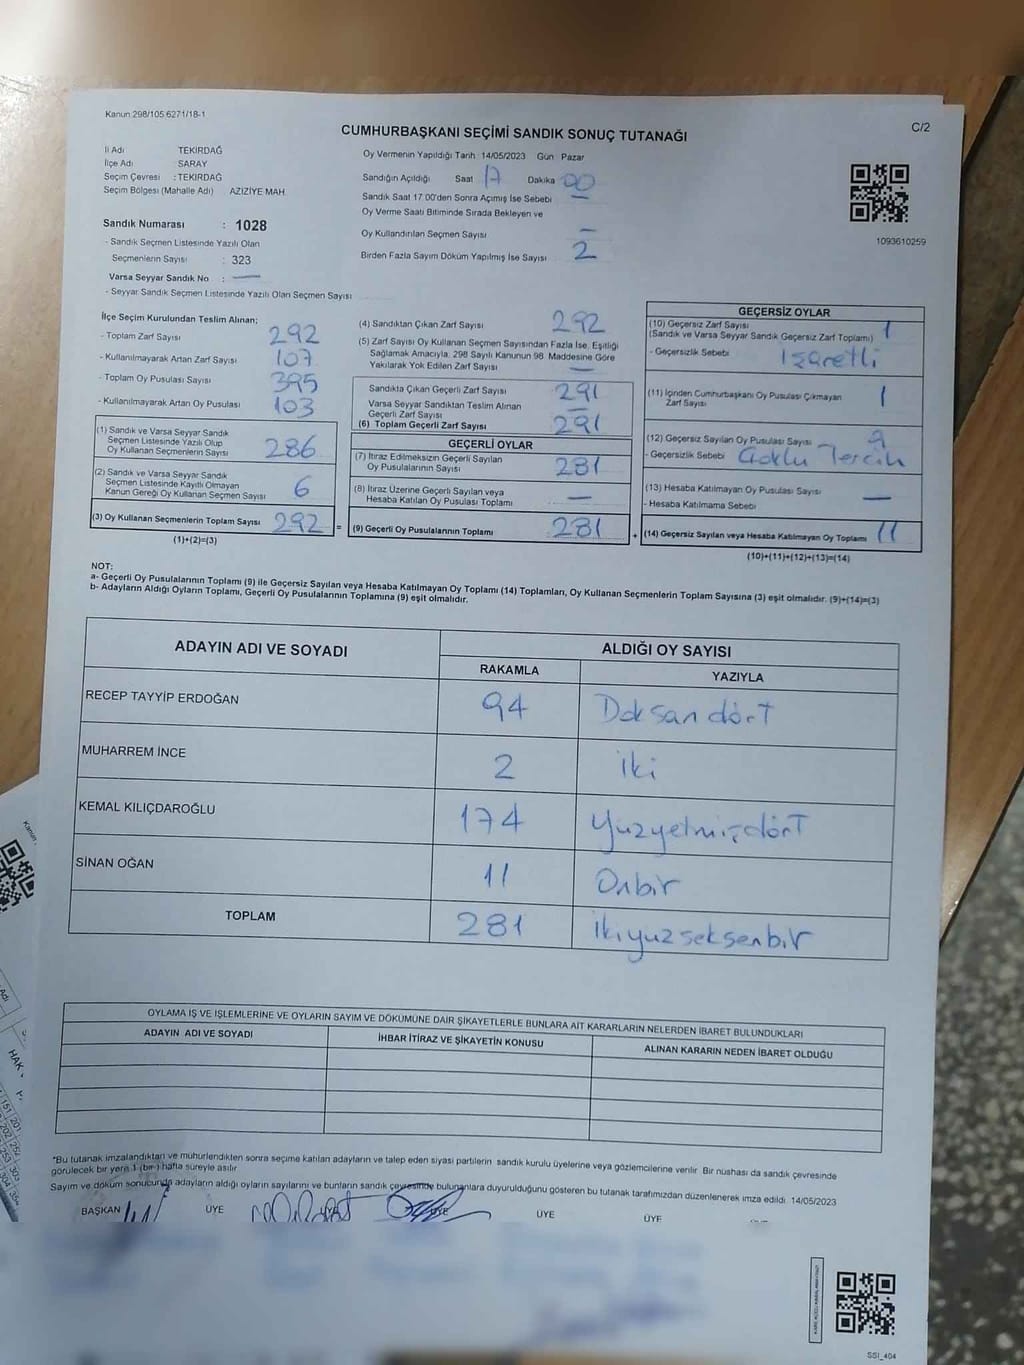 Kanun 298/105 6271/18-1
C/2
CUMHURBAŞKANI SEÇİMİ SANDIK SONUÇ TUTANAĞI
İl Adı TEKİRDAĞ
İlçe Adı : SARAY
Seçim Çevresi : TEKİRDAĞ
Seçim Bölgesi (Mahalle Adı) AZİZİYE MAH.
Sandık Numarası : 1028
- Sandık Seçmen Listesinde Yazılı Olan
Seçmenlerin Sayısı : 323
Varsa Seyyar Sandık No : —
- Seyyar Sandık Seçmen Listesinde Yazılı Olan Seçmen Sayısı
Oy Vermenin Yapıldığı Tarih 14/05/2023 Gün Pazar
Sandığın Açıldığı Saat 17 Dakika 00
Sandık Saat 17.00'den Sonra Açılmış İse Sebebi —
Oy Verme Saati Bitiminde Sırada Bekleyen ve
Oy Kullandırılan Seçmen Sayısı —
Birden Fazla Sayım Döküm Yapılmış İse Sayısı 2
1093610259
İlçe Seçim Kurulundan Teslim Alınan;
- Toplam Zarf Sayısı 292
- Kullanılmayarak Artan Zarf Sayısı 107
- Toplam Oy Pusulası Sayısı 395
- Kullanılmayarak Artan Oy Pusulası 103
(1) Sandık ve Varsa Seyyar Sandık
Seçmen Listesinde Yazılı Olup
Oy Kullanan Seçmenlerin Sayısı 286
(2) Sandık ve Varsa Seyyar Sandık
Seçmen Listesinde Kayıtlı Olmayan
Kanun Gereği Oy Kullanan Seçmen Sayısı 6
(3) Oy Kullanan Seçmenlerin Toplam Sayısı 292 =
(1)+(2)=(3)
(4) Sandıktan Çıkan Zarf Sayısı 292
(5) Zarf Sayısı Oy Kullanan Seçmen Sayısından Fazla İse, Eşitliği
Sağlamak Amacıyla, 298 Sayılı Kanunun 98. Maddesine Göre
Yakılarak Yok Edilen Zarf Sayısı —
Sandıkta Çıkan Geçerli Zarf Sayısı 291
Varsa Seyyar Sandıktan Teslim Alınan
Geçerli Zarf Sayısı —
(6) Toplam Geçerli Zarf Sayısı 291
GEÇERLİ OYLAR
(7) İtiraz Edilmeksizin Geçerli Sayılan
Oy Pusulalarının Sayısı 281
(8) İtiraz Üzerine Geçerli Sayılan veya
Hesaba Katılan Oy Pusulası Toplamı —
(9) Geçerli Oy Pusulalarının Toplamı 281 +
GEÇERSİZ OYLAR
(10) Geçersiz Zarf Sayısı 1
(Sandık ve Varsa Seyyar Sandık Geçersiz Zarf Toplamı)
- Geçersizlik Sebebi İşaretli
(11) İçinden Cumhurbaşkanı Oy Pusulası Çıkmayan
Zarf Sayısı 1
(12) Geçersiz Sayılan Oy Pusulası Sayısı 9
- Geçersizlik Sebebi Çoklu Tercih
(13) Hesaba Katılmayan Oy Pusulası Sayısı —
- Hesaba Katılmama Sebebi
(14) Geçersiz Sayılan veya Hesaba Katılmayan Oy Toplamı 11
(10)+(11)+(12)+(13)=(14)
NOT:
a- Geçerli Oy Pusulalarının Toplamı (9) ile Geçersiz Sayılan veya Hesaba Katılmayan Oy Toplamı (14) Toplamları, Oy Kullanan Seçmenlerin Toplam Sayısına (3) eşit olmalıdır. (9)+(14)=(3)
b- Adayların Aldığı Oyların Toplamı, Geçerli Oy Pusulalarının Toplamına (9) eşit olmalıdır.
ADAYIN ADI VE SOYADI ALDIĞI OY SAYISI
RAKAMLA YAZIYLA
RECEP TAYYİP ERDOĞAN 94 Doksan dört
MUHARREM İNCE 2 iki
KEMAL KILIÇDAROĞLU 174 Yüzyetmişdört
SİNAN OĞAN 11 Onbir
TOPLAM 281 ikiyüzseksenbir
OYLAMA İŞ VE İŞLEMLERİNE VE OYLARIN SAYIM VE DÖKÜMÜNE DAİR ŞİKAYETLERLE BUNLARA AİT KARARLARIN NELERDEN İBARET BULUNDUKLARI
ADAYIN ADI VE SOYADI İHBAR İTİRAZ VE ŞİKAYETİN KONUSU ALINAN KARARIN NEDEN İBARET OLDUĞU
*Bu tutanak imzalandıktan ve mühürlendikten sonra seçime katılan adayların ve talep eden siyasi partilerin sandık kurulu üyelerine veya gözlemcilerine verilir. Bir nüshası da sandık çevresinde
görülecek bir yere 1 (bir) hafta süreyle asılır.
Sayım ve döküm sonucunda adayların aldığı oyların sayılarını ve bunların sandık çevresinde bulunanlara duyurulduğunu gösteren bu tutanak tarafımızdan düzenlenerek imza edildi. 14/05/2023
BAŞKAN ÜYE ÜYE ÜYE ÜYE ÜYE
SSI_404